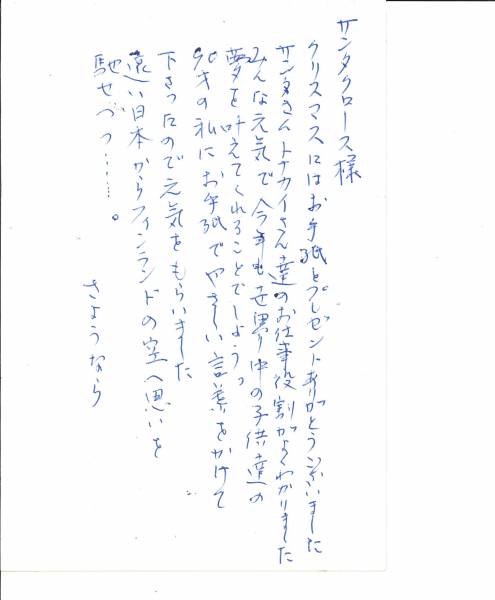 サンタクロース様
クリスマスにはお手紙とプレゼントありがとうございました
サンタさんトナカイさん達のお仕事役割がよくわかりました
みんな元気で今年も世界中の子供達の
夢を叶えてくれることでしょうっ
90才の私にお手紙でやさしい言葉をかけて
下さったので元気をもらいました
遠い日本からフィンランドの空へ思いを
馳せつつ……。
さようなら